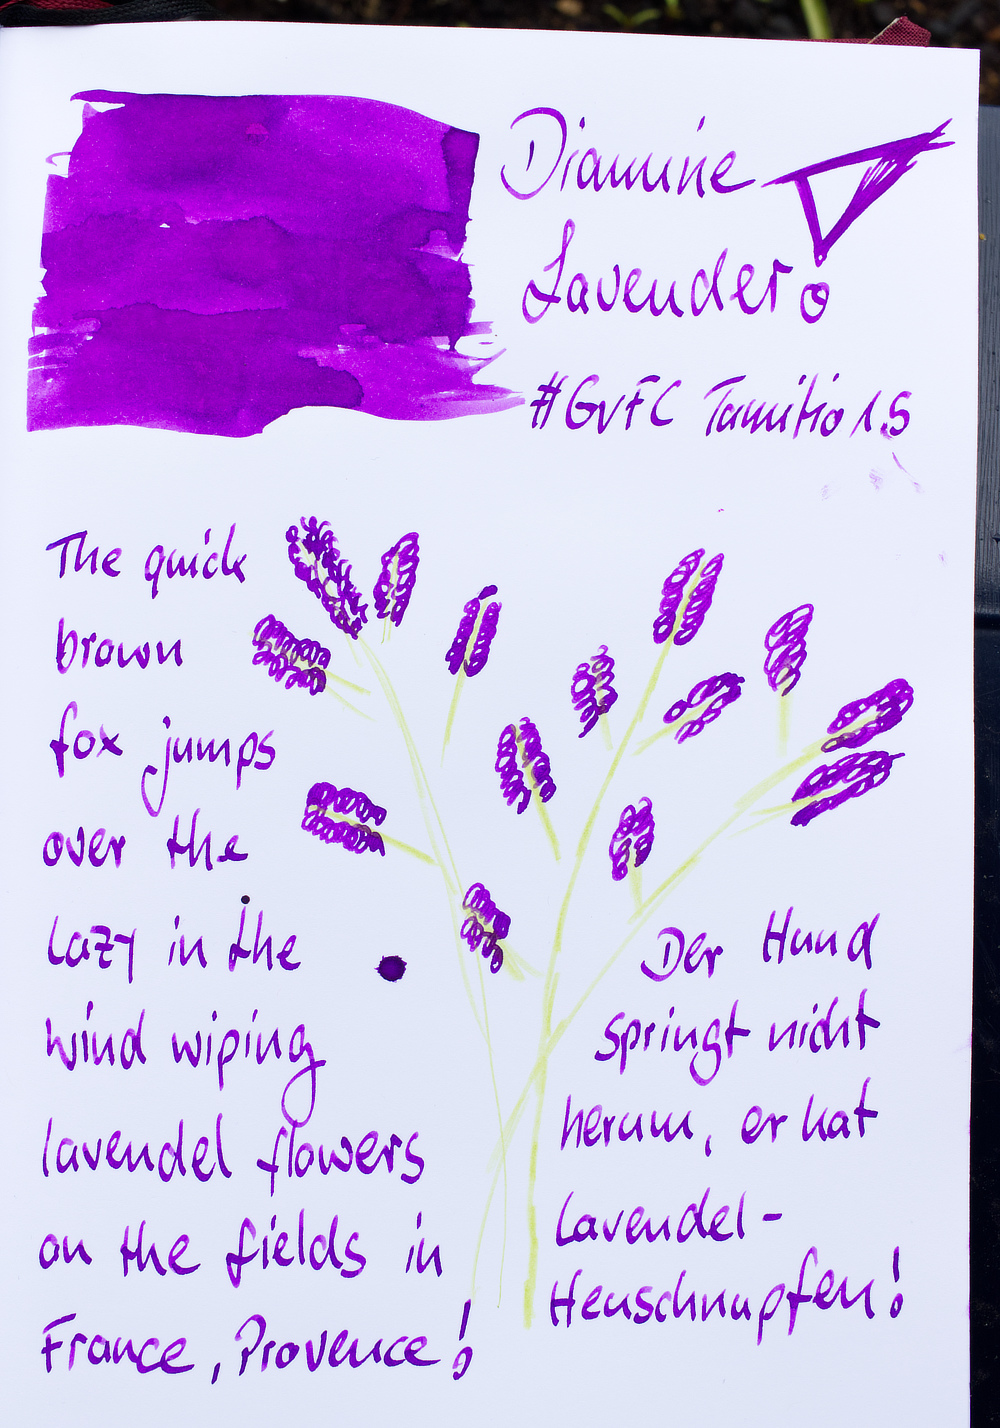 Diamine
Lavender
#GvFC Tamitio 1.5
The quick
brown
fox jumps
over the
lazy in the
wind wiping
lavendel flowers
on the fields in
France, Provence!
Der Hund
springt nicht
herum, er hat
Lavendel-
Heuschnupfen!